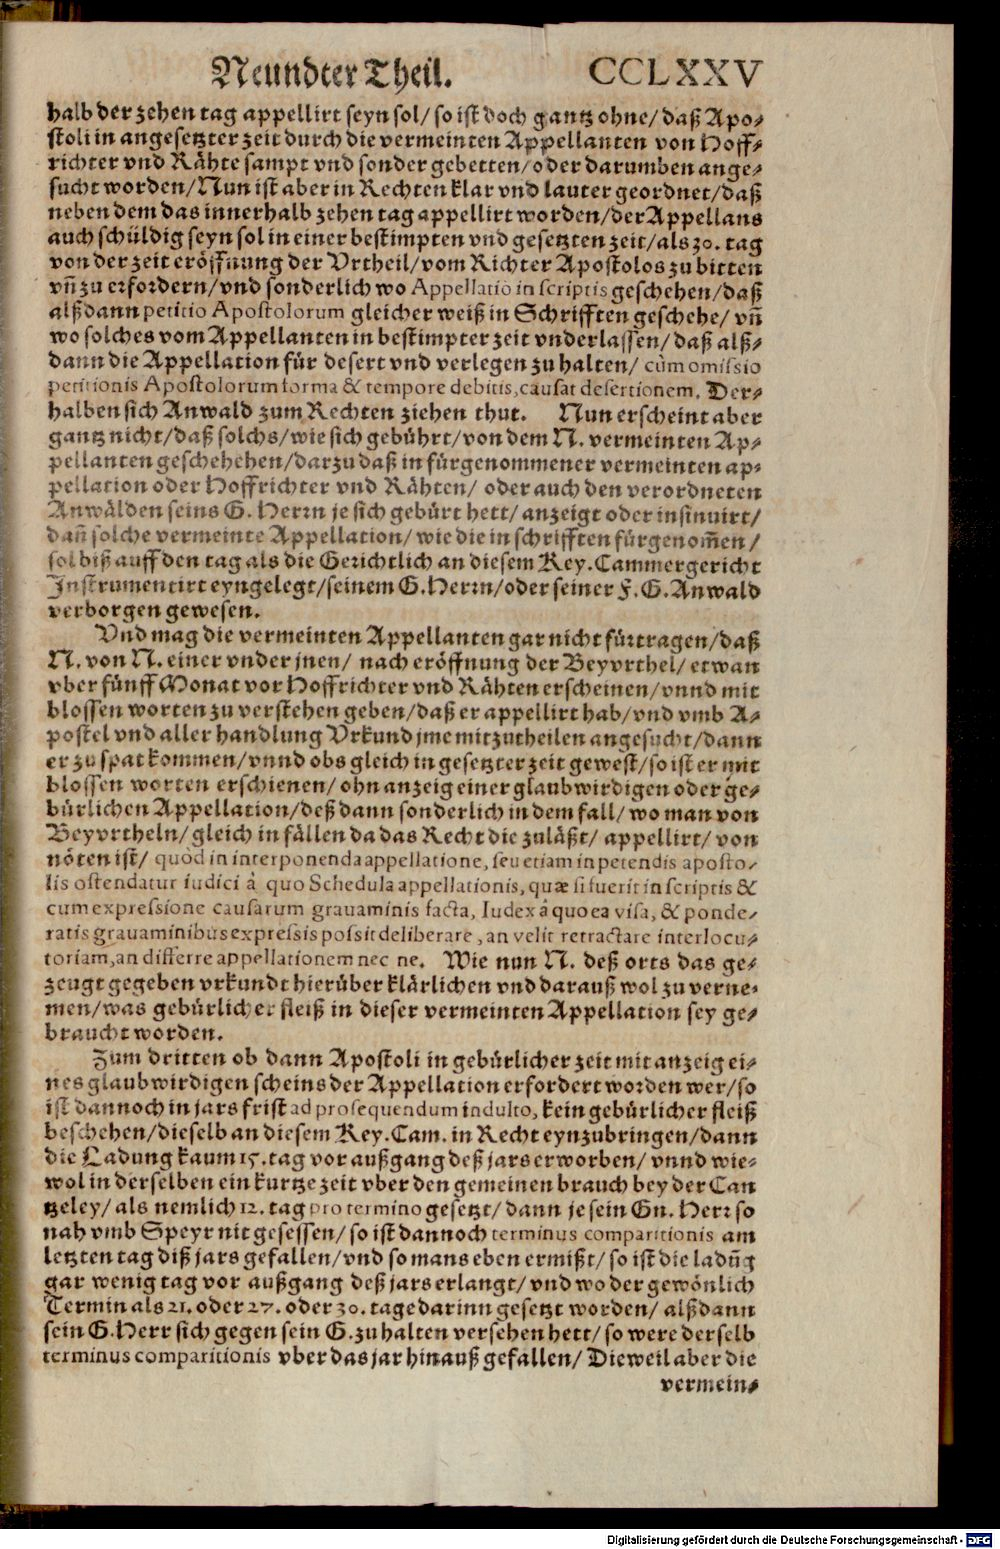 Neundter Theil. CCLXXV
halb der zehen tag appellirt seyn sol/ so ist doch gantz ohne/ daß Apo-
stoli in angesetzter zeit durch die vermeinten Appellanten von Hoff-
richter vnd Rähte sampt vnd sonder gebetten/ oder darumben ange-
sucht worden/ Nun ist aber in Rechten klar vnd lauter geordnet/ daß
neben dem das innerhalb zehen tag appellirt worden/ der Appellans
auch schüldig seyn sol in einer bestimpten vnd gesetzten zeit/ als 30. tag
von der zeit eröffnung der Vrtheil/ vom Richter Apostolos zu bitten
vñ zu erfordern/ vnd sonderlich wo Appellatiō in scriptis geschehen/ daß
alßdann petitio Apostolorum gleicher weiß in Schrifften geschehe/ vñ
wo solches vom Appellanten in bestimpter zeit vnderlassen/ daß alß-
dann die Appellation für desert vnd verlegen zu halten/ cùm omissio
petitionis Apostolorum forma & tempore debitis, causat desertionem. Der-
halben sich Anwald zum Rechten ziehen thut. Nun erscheint aber
gantz nicht/ daß solchs/ wie sich gebührt/ von dem N. vermeinten Ap-
pellanten geschehehen/ darzu daß in fürgenommener vermeinten ap-
pellation oder Hoffrichter vnd Rähten/ oder auch den verordneten
Anwälden seins G. Herrn je sich gebürt hett/ anzeigt oder insinuirt/
dañ solche vermeinte Appellation/ wie die in schrifften fürgenom̃en/
sol biß auff den tag als die Gerichtlich an diesem Key. Cammergericht
Instrumentirt eyngelegt/ seinem G. Herrn/ oder seiner F. G. Anwald
verborgen gewesen.
Vnd mag die vermeinten Appellanten gar nicht fürtragen/ daß
N. von N. einer vnder jnen/ nach eröffnung der Beyvrthel/ etwan
vber fünff Monat vor Hoffrichter vnd Rähten erscheinen/ vnnd mit
blossen worten zu verstehen geben/ daß er appellirt hab/ vnd vmb A-
postel vnd aller handlung Vrkund jme mitzutheilen angesucht/ dann
er zu spat kommen/ vnnd obs gleich in gesetzter zeit gewest/ so ist er mit
blossen worten erschienen/ ohn anzeig einer glaubwirdigen oder ge-
bürlichen Appellation/ deß dann sonderlich in dem fall/ wo man von
Beyvrtheln/ gleich in fällen da das Recht die zuläßt/ appellirt/ von
nöten ist/ quòd in interponenda appellatione, seu etiam in petendis aposto-
lis ostendatur iudici â quo Schedula appellationis, quæ si fuerit in scriptis &
cum expressione causarum grauaminis facta, Iudex â quo ea visa, & ponde-
ratis grauaminibus expressis possit deliberare, an velit retractare interlocu-
toriam, an differre appellationem nec ne. Wie nun N. deß orts das ge-
zeugt gegeben vrkundt hierüber klärlichen vnd darauß wol zu verne-
men/ was gebürlicher fleiß in dieser vermeinten Appellation sey ge-
braucht worden.
Zum dritten ob dann Apostoli in gebürlicher zeit mit anzeig ei-
nes glaubwirdigen scheins der Appellation erfordert worden wer/ so
ist dannoch in jars frist ad prosequendum indulto, kein gebürlicher fleiß
beschehen/ dieselb an diesem Key. Cam. in Recht eynzubringen/ dann
die Ladung kaum 15. tag vor außgang deß jars erworben/ vnnd wie-
wol in derselben ein kurtze zeit vber den gemeinen brauch bey der Can
tzeley/ als nemlich 12. tag pro termino gesetzt/ dann je sein Gn. Herr so
nah vmb Speyr nit gesessen/ so ist dannoch terminus comparitionis am
letzten tag diß jars gefallen/ vnd so mans eben ermißt/ so ist die ladũg
gar wenig tag vor außgang deß jars erlangt/ vnd wo der gewönlich
Termin als 21. oder 27. oder 30. tage darinn gesetzt worden/ alßdann
sein G. Herr sich gegen sein G. zu halten versehen hett/ so were derselb
terminus comparitionis vber das jar hinauß gefallen/ Dieweil aber die
vermein-
Digitalisierung gefördert durch die Deutsche Forschungsgemeinschaft - DFG